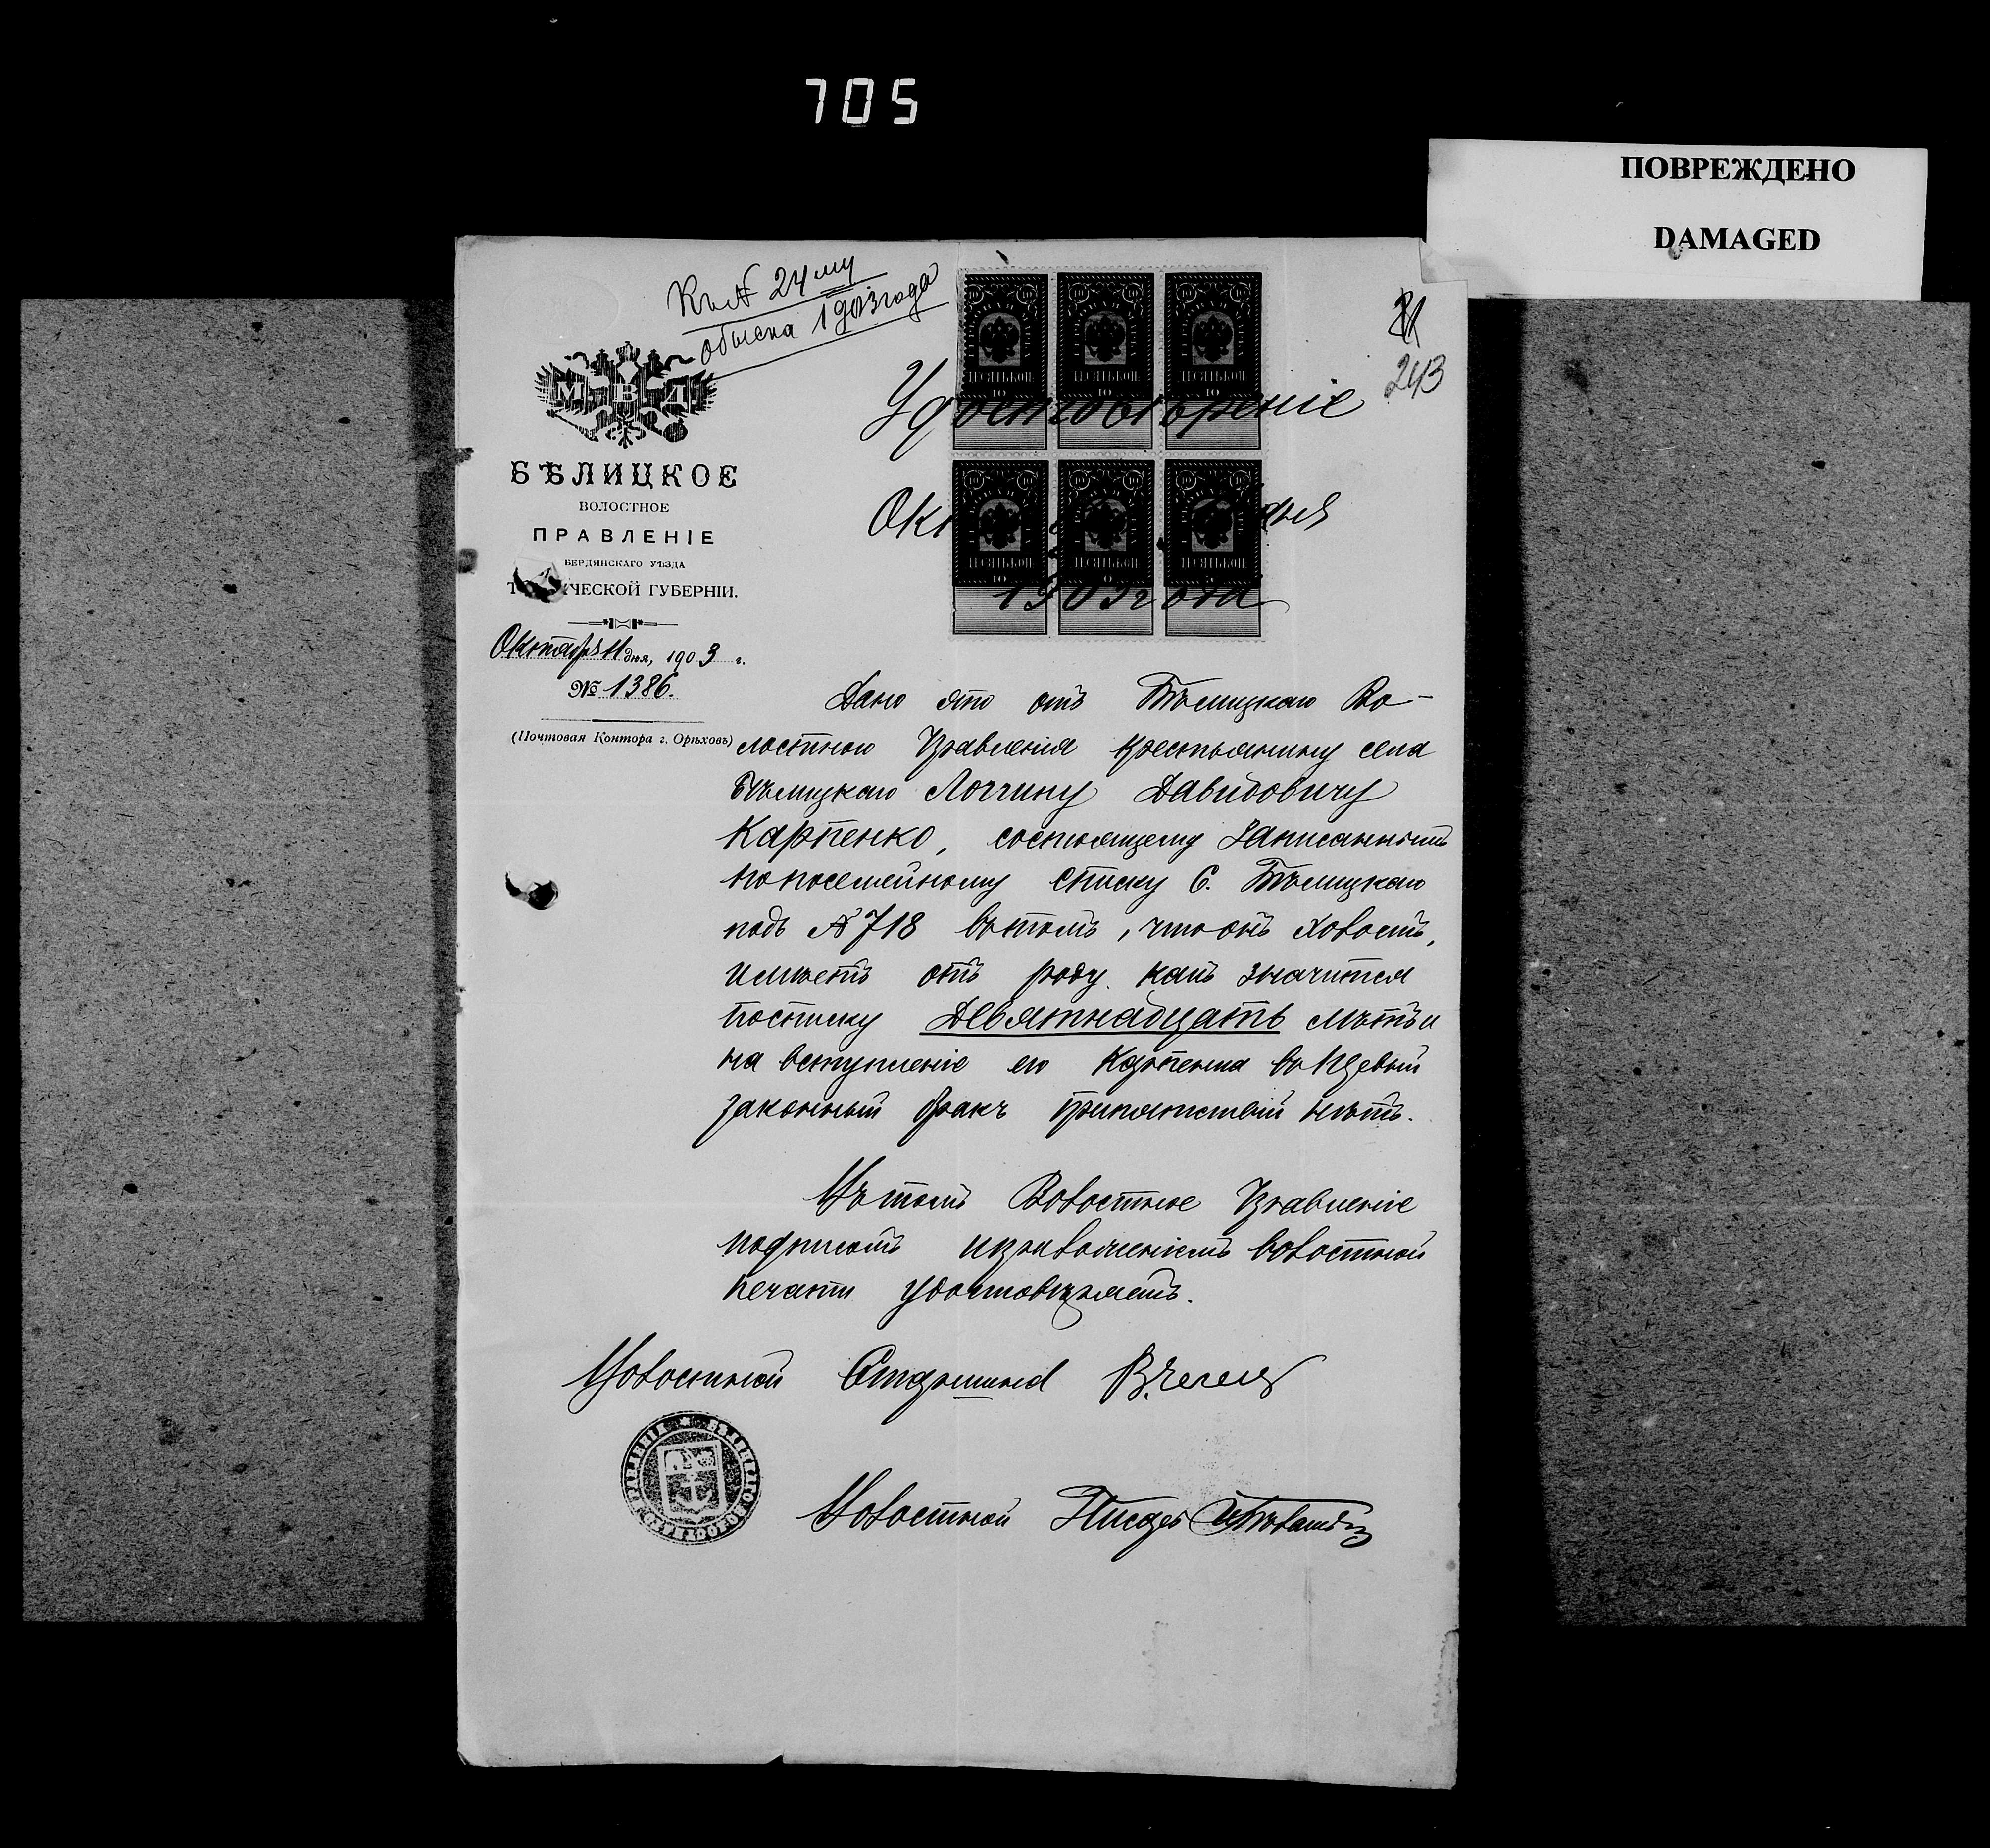 705
ПОВРЕЖДЕНО
DAMAGED
Къ № 24му
обыска 1903 года
243
М В Д
БѢЛИЦКОЕ
ВОЛОСТНОЕ
ПРАВЛЕНІЕ
БЕРДЯНСКАГО УѢЗДА
ТАВРИЧЕСКОЙ ГУБЕРНІИ.
Октября 11 дня, 1903 г.
№ 1386.
(Почтовая Контора г. Орѣховъ)
Удостовѣреніе
дня
1903 года
Дано это отъ Бѣлицкаго Во-
лостного Правленія крестьянину села
Бѣлицкаго Логгину Давидовичу
Карпенко, состоящему записаннымъ
по посемейному списку С. Бѣлицкаго
подъ № 718 въ томъ, что онъ холостъ,
имѣетъ отъ роду какъ значится
по списку Девятнадцать лѣтъ и
на вступленіе его Карпенка въ 1й первый
законный бракъ препятствій нѣтъ.
Въ томъ Волостное Правленіе
подписомъ и приложеніемъ волостной
печати удостовѣряетъ.
Волостной Старшина
Волостной Писарь